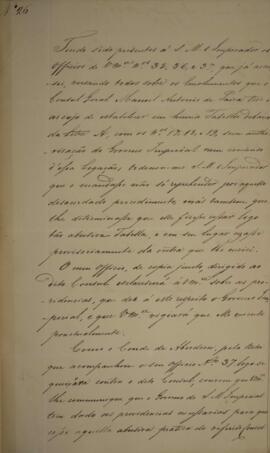 Nº 26
Tendo sido presentes á S. M. o Imperador os
Officios de V. Mce Nos 35, 36, e 37 que já accu-
sei, versando todos sobre os Emolumentos que o
Consul Geral Manoel Antonio de Paiva tive-
ra a estabelecer em huma Tabella debaixo
da letra A, com os Nos 12, e 13, sem auto-
risação do Governo Imperial nem
d'essa Legação, ordenou-me S. M. o Imperador
que o mandasse não só reprehender por aquelle
desacordado procedimento, mas tambem que
lhe determinasse que elle fizesse cessar logo
tão abusiva Tabella, e em seu lugar usasse
provisoriamente da outra que lhe enviei.
O meu officio, de copia junto, dirigido ao
dito Consul esclarecerá á V. Mce sobre as pro-
videncias, que deo á este respeito o Governo Im-
perial, e que V. Mce vigiará que elle execute
pontualmente.
Como o Conde de Aberdeen, pela Nota
que acompanhou o seu Officio Nº 37
contra o dito Consul, convem que V. Mce
lhe communique que o Governo de S. M. Imperial
tem dado as providencias necessarias para que
cesse aquella abusiva pratica do referido Consul